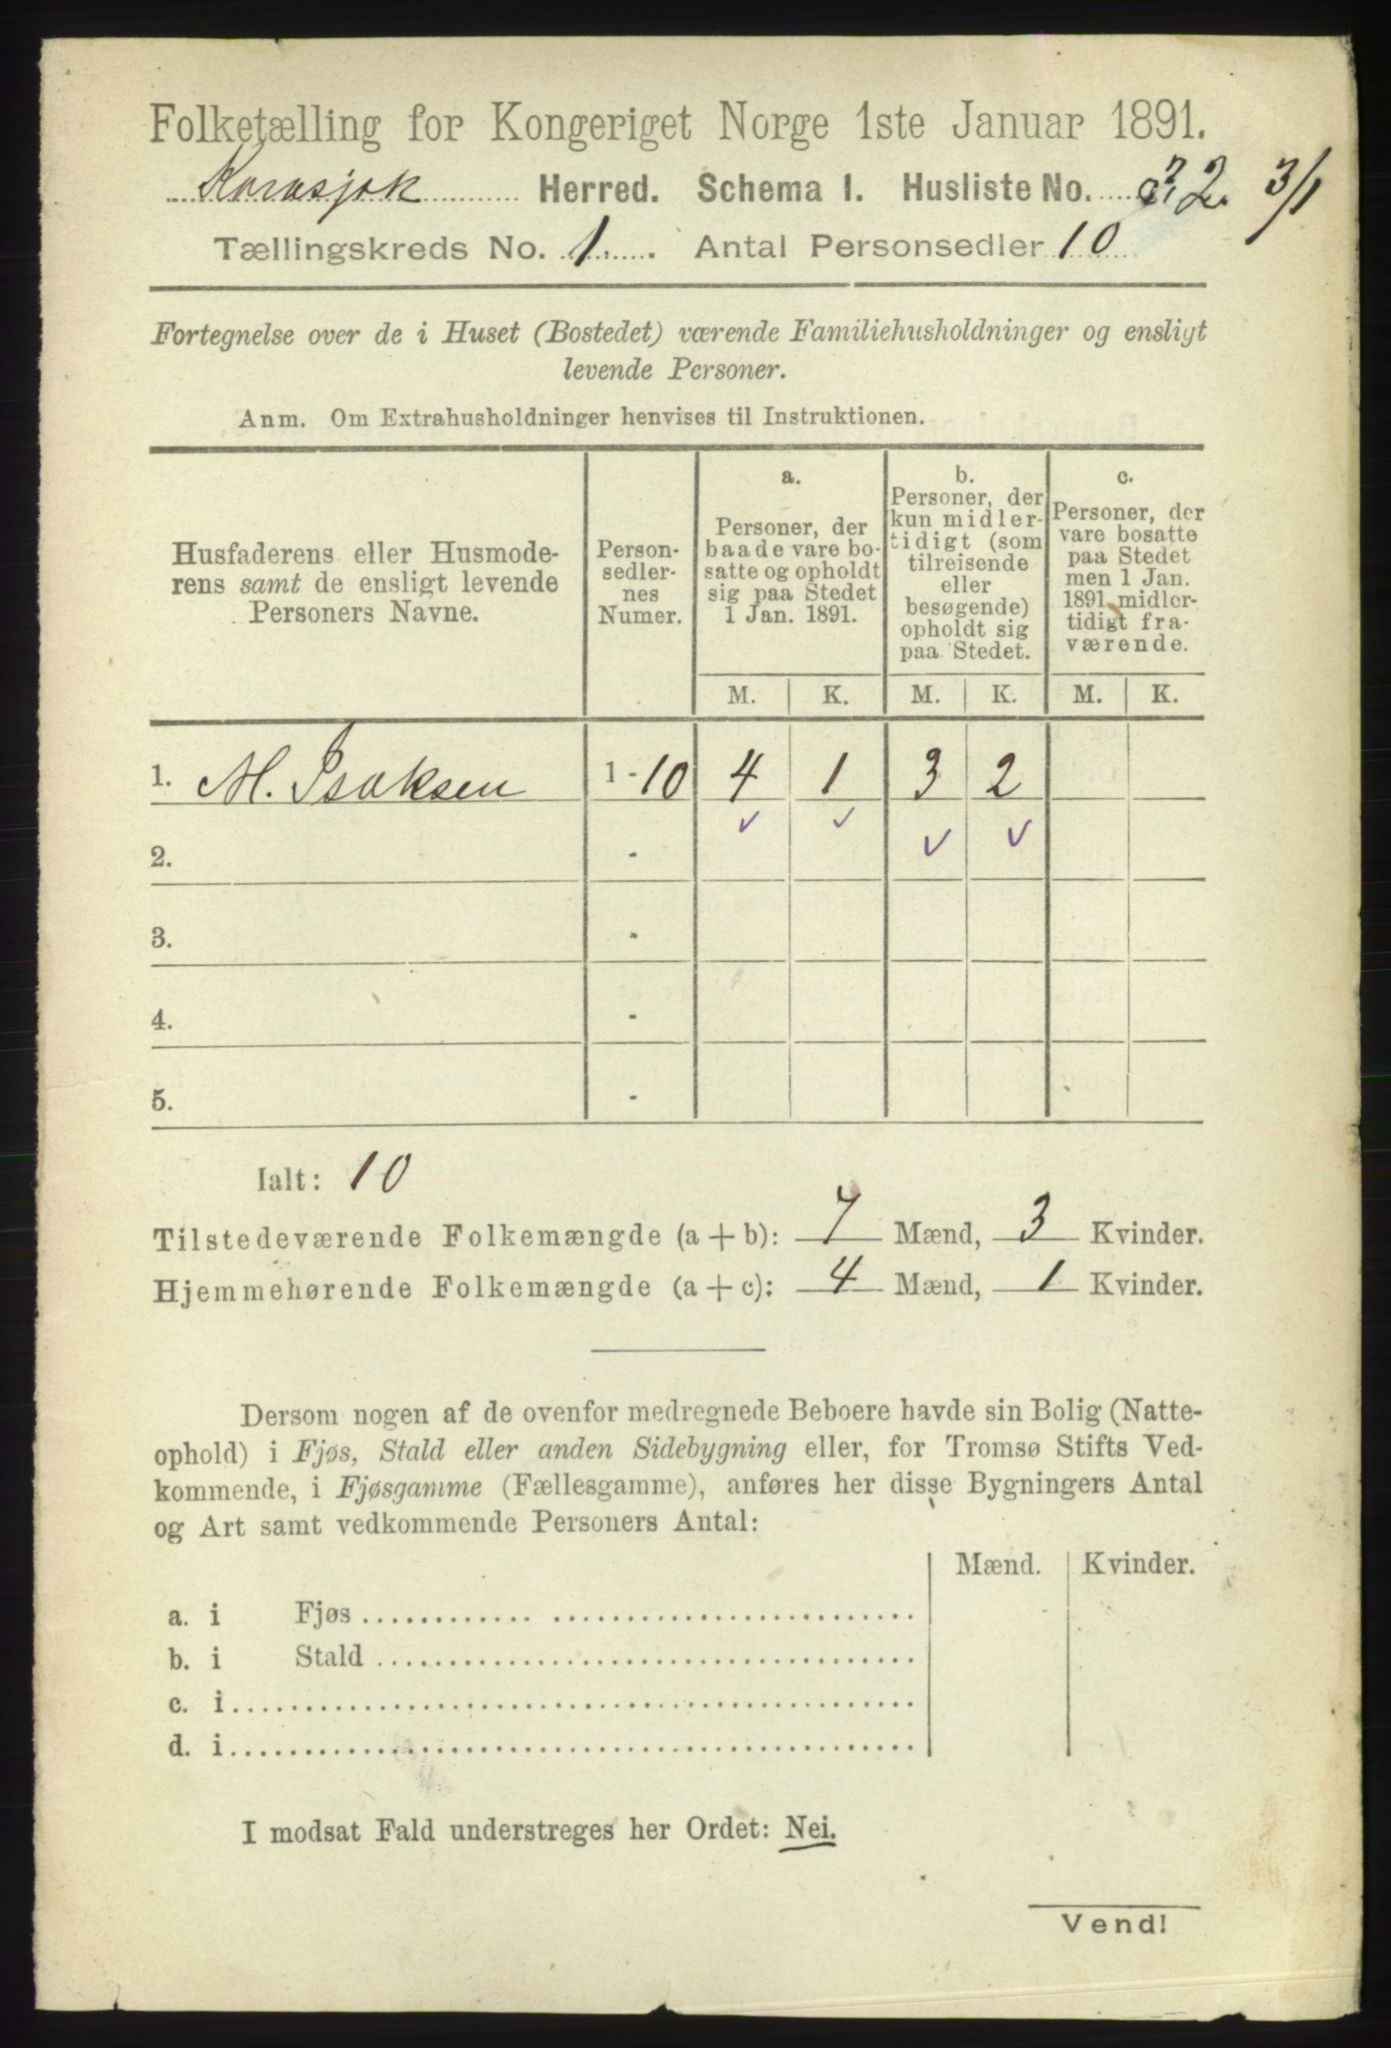 Folketælling for Kongeriget Norge 1ste Januar 1891.
Karasjok Herred. Schema I. Husliste No. 32. 3/1
Tællingskreds No. 1. Antal Personsedler 10
Fortegnelse over de i Huset (Bostedet) værende Familiehusholdninger og ensligt
levende Personer.
Anm. Om Extrahusholdninger henvises til Instruktionen.
Husfaderens eller Husmode-
rens samt de ensligt levende
Personers Navne.
Person-
sedler-
nes
Numer.
a.
Personer, der
baade vare bo-
satte og opholdt
sig paa Stedet
1 Jan. 1891.
b.
Personer, der
kun midler-
tidigt (som
tilreisende
eller
besøgende)
opholdt sig
paa Stedet.
c.
Personer, der
vare bosatte
paa Stedet
men 1 Jan.
1891 midler-
tidigt fra-
værende.
M. K. M. K. M. K.
1. M. Isaksen 1 - 10 4 1 3 2
✓ ✓ ✓ ✓
2. -
3. -
4. -
5. -
Ialt: 10
Tilstedeværende Folkemængde (a + b): 7 Mænd, 3 Kvinder.
Hjemmehørende Folkemængde (a + c): 4 Mænd, 1 Kvinder.
Dersom nogen af de ovenfor medregnede Beboere havde sin Bolig (Natte-
ophold) i Fjøs, Stald eller anden Sidebygning eller, for Tromsø Stifts Ved-
kommende, i Fjøsgamme (Fællesgamme), anføres her disse Bygningers Antal
og Art samt vedkommende Personers Antal:
Mænd. Kvinder.
a. i Fjøs
b. i Stald
c. i
d. i
I modsat Fald understreges her Ordet: Nei.
Vend!